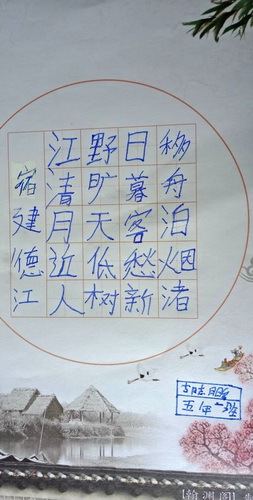 移舟泊烟渚
日暮客愁新
野旷天低树
江清月近人
宿建德江
五年一班
翰渊阁